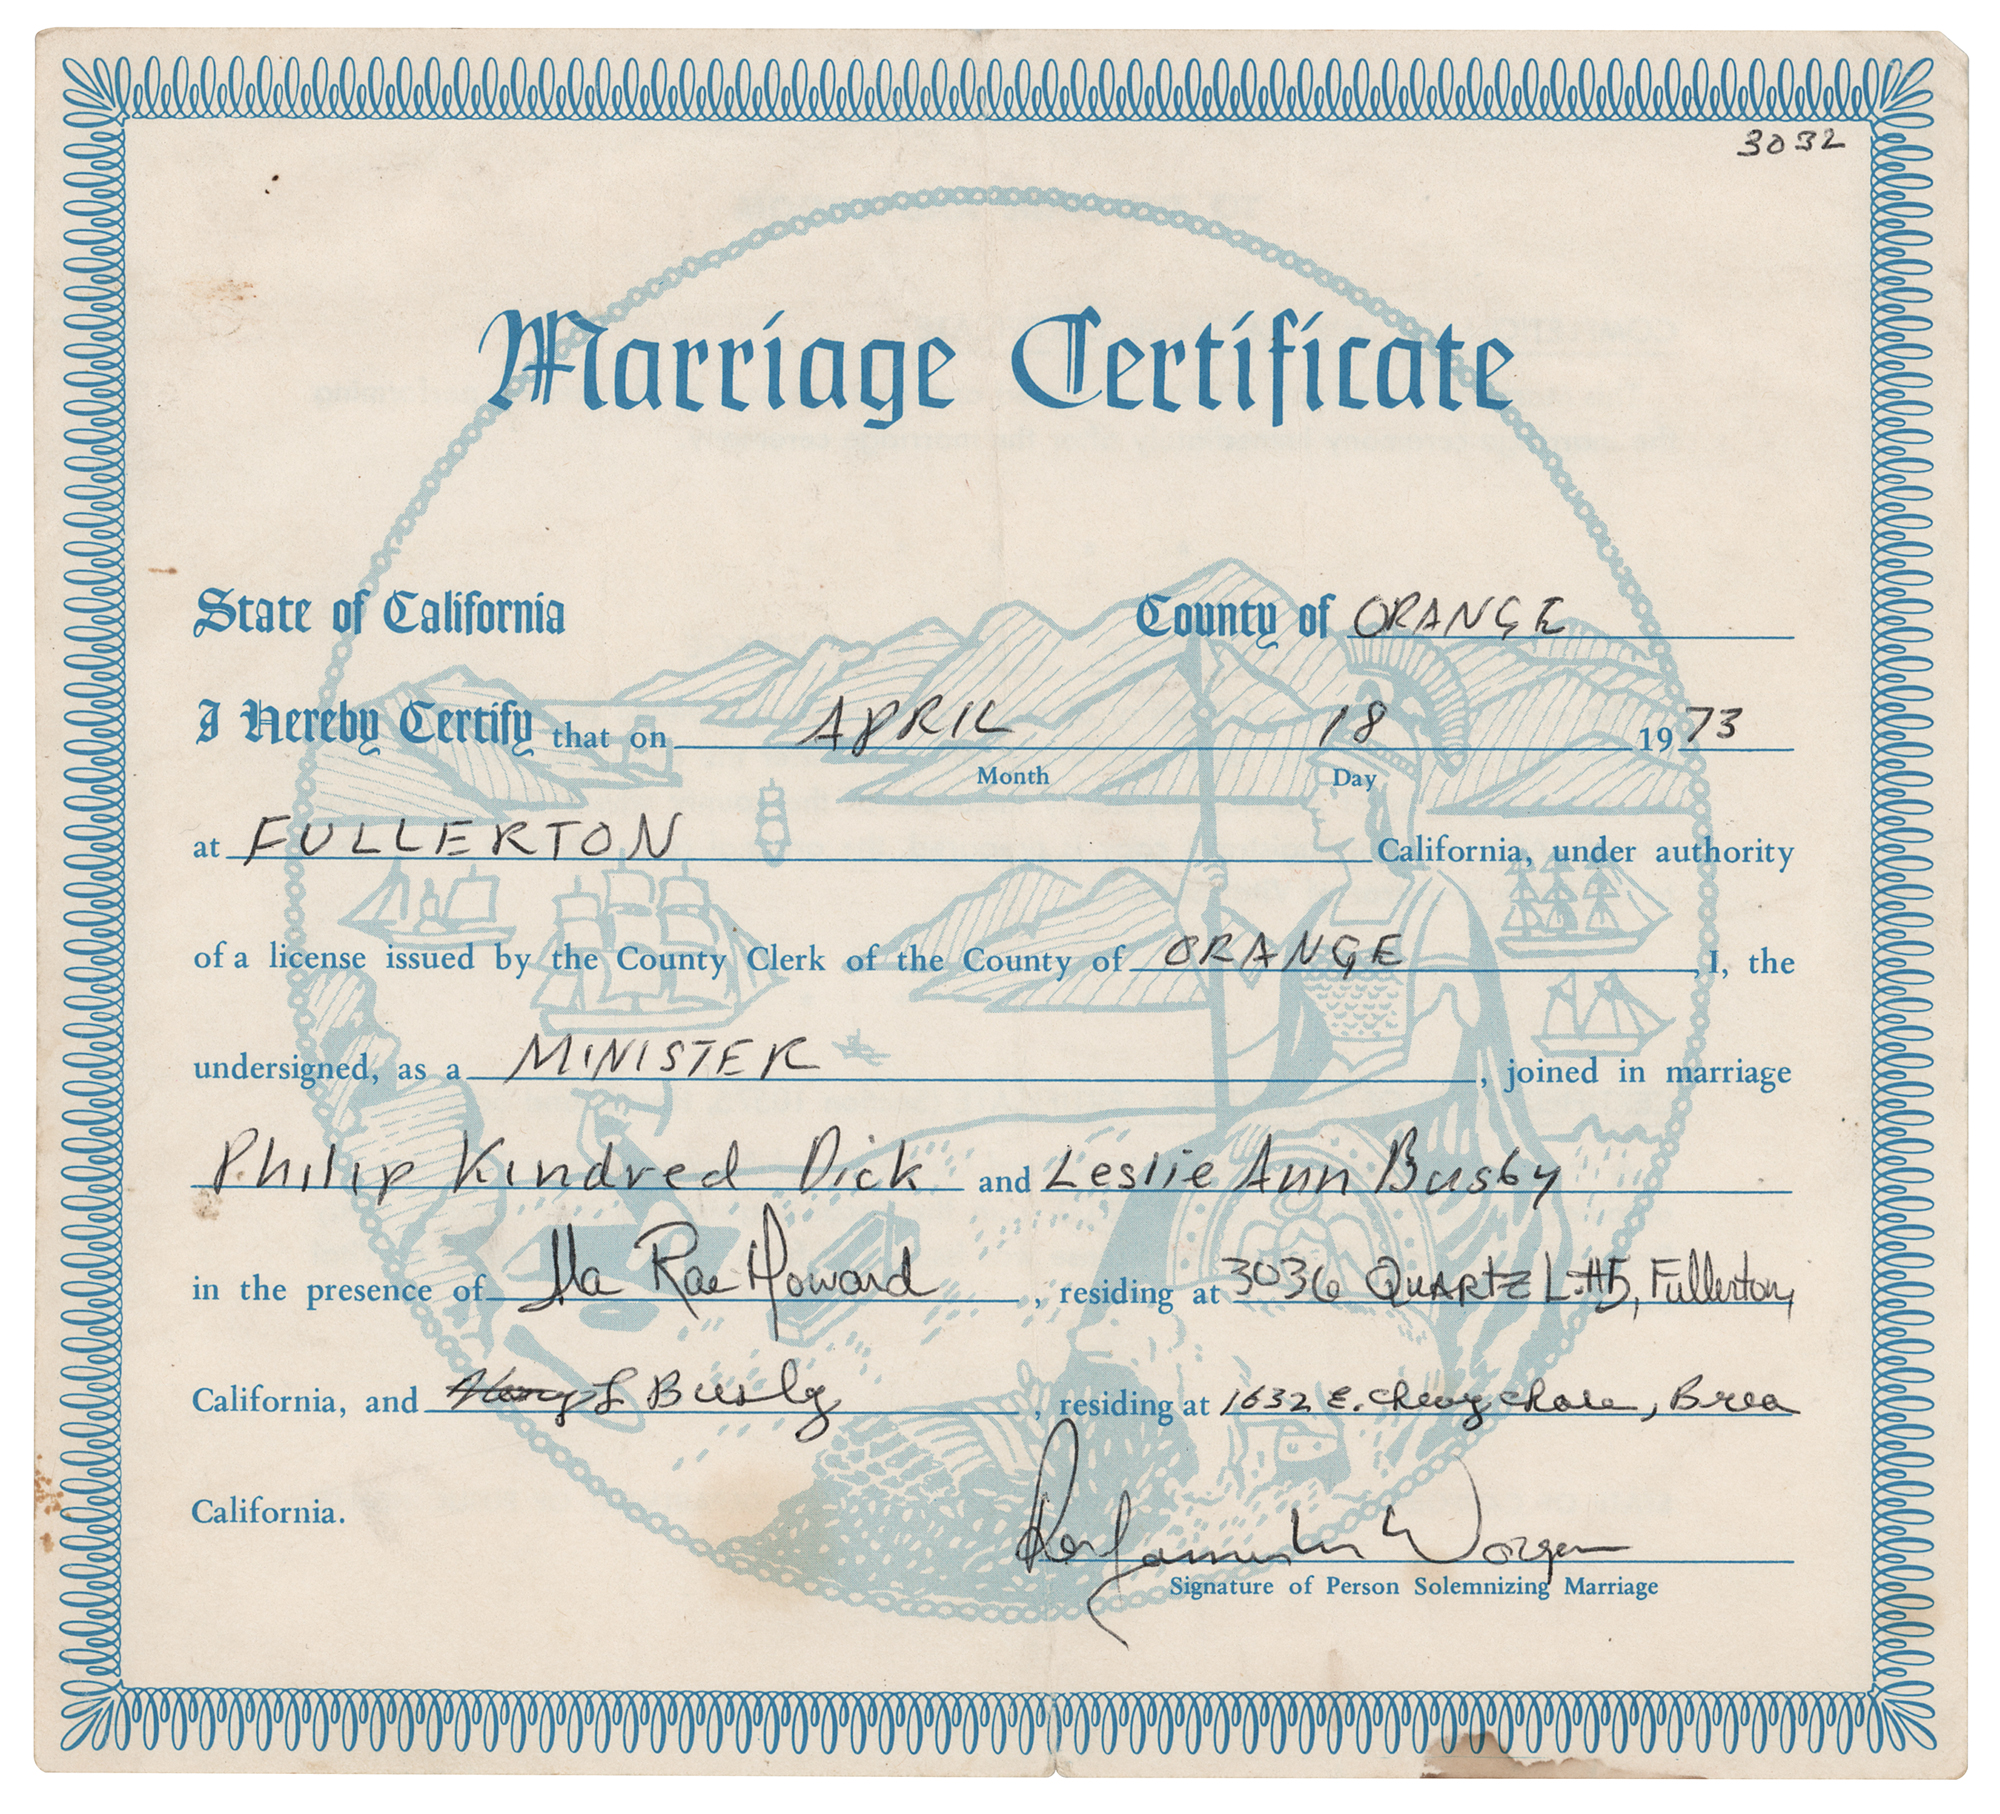 3032
Marriage Certificate
State of California County of ORANGE
I Hereby Certify that on APRIL 18 1973
Month Day
at FULLERTON California, under authority
of a license issued by the County Clerk of the County of ORANGE, I, the
undersigned, as a MINISTER, joined in marriage
Philip Kindred Dick and Leslie Ann Busby
in the presence of Ila Rae Howard, residing at 3036 QUARTZ L. #5, Fullerton,
California, and L Busby, residing at 1632 E. Chevy Chase, Brea
California.
Signature of Person Solemnizing Marriage